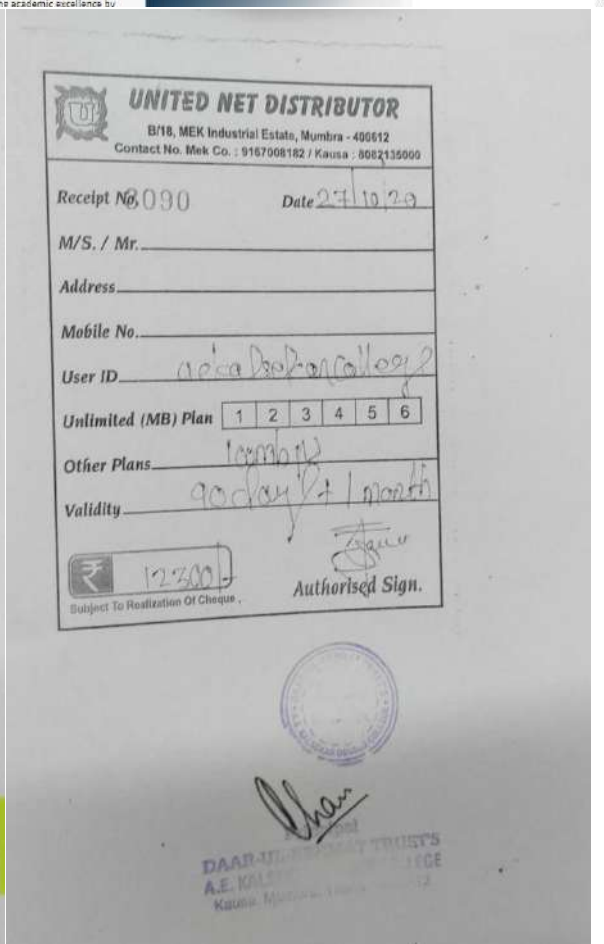 ng academic excellence by
UNITED NET DISTRIBUTOR
B/18, MEK Industrial Estate, Mumbra - 400612
Contact No. Mek Co. : 9167008182 / Kausa : 8082135000
Receipt No. 8090 Date 27/10/20
M/S. / Mr.
Address
Mobile No.
User ID
Unlimited (MB) Plan 1 2 3 4 5 6
Other Plans
Validity 90 days + 1 month
₹ 12300/-
Subject To Realization Of Cheque. Authorised Sign.
DAAR-UL- TRUST'S
A.E. COLLEGE
Kausa,